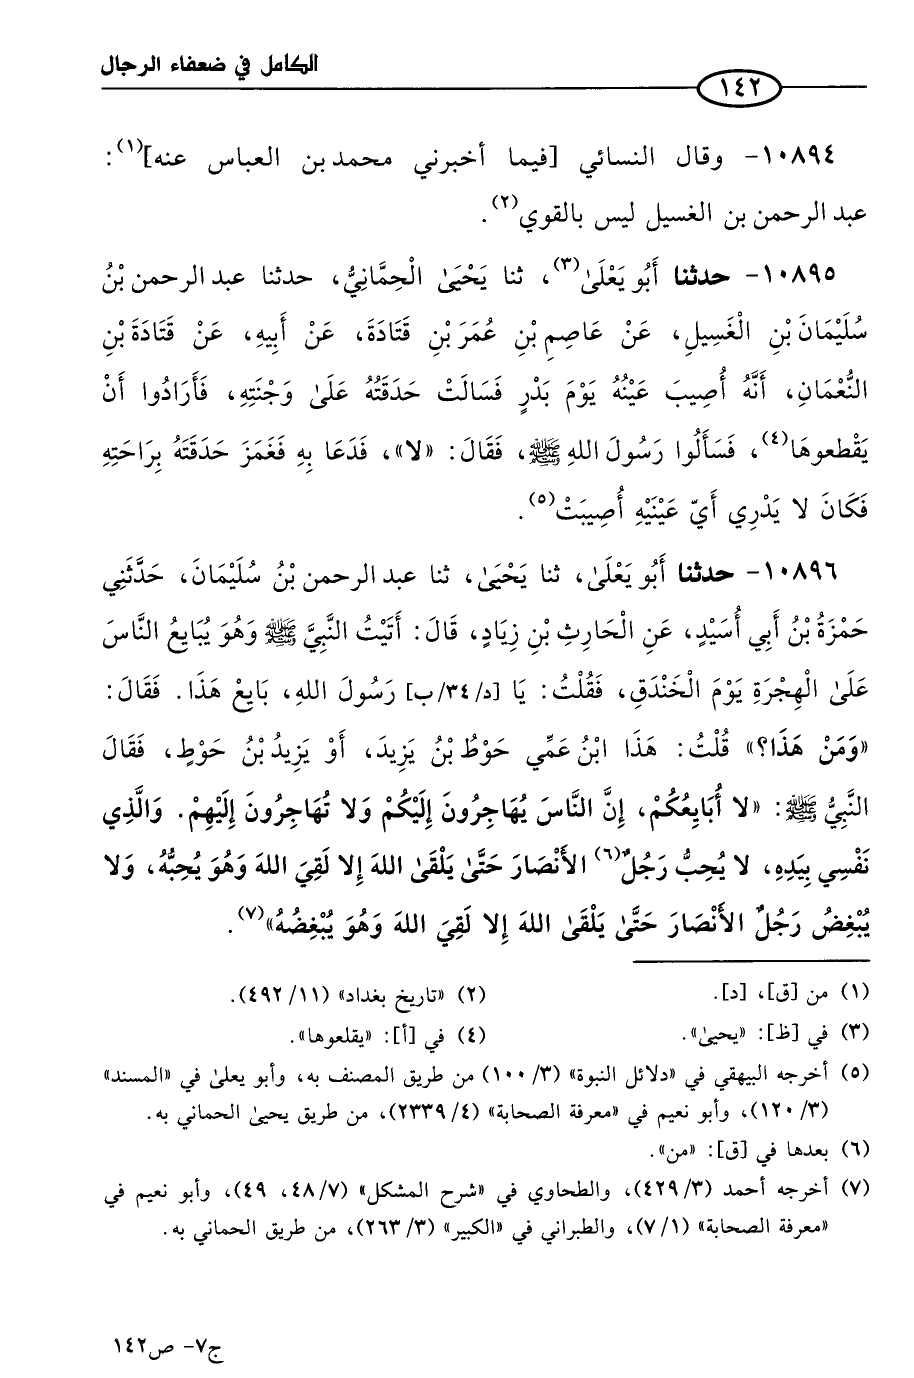 الكامل في ضعفاء الرجال
١٤٢
١٠٨٩٤- وقال النسائي [فيما أخبرني محمد بن العباس عنه](١):
عبد الرحمن بن الغسيل ليس بالقوي(٢).
١٠٨٩٥- حدثنا أَبُو يَعْلَىٰ(٣)، ثنا يَحْيَىٰ الْحِمَّانِيُّ، حدثنا عبد الرحمن بْنُ
سُلَيْمَانَ بْنِ الْغَسِيلِ، عَنْ عَاصِمِ بْنِ عُمَرَ بْنِ قَتَادَةَ، عَنْ أَبِيهِ، عَنْ قَتَادَةَ بْنِ
النُّعْمَانِ، أَنَّهُ أُصِيبَ عَيْنُهُ يَوْمَ بَدْرٍ فَسَالَتْ حَدَقَتُهُ عَلَىٰ وَجْنَتِهِ، فَأَرَادُوا أَنْ
يَقْطعوهَا(٤)، فَسَأَلُوا رَسُولَ اللهِ ﷺ، فَقَالَ: «لا»، فَدَعَا بِهِ فَغَمَزَ حَدَقَتَهُ بِرَاحَتِهِ
فَكَانَ لا يَدْرِي أَيّ عَيْنَيْهِ أُصِيبَتْ(٥).
١٠٨٩٦- حدثنا أَبُو يَعْلَىٰ، ثنا يَحْيَىٰ، ثنا عبد الرحمن بْنُ سُلَيْمَانَ، حَدَّثَنِي
حَمْزَةُ بْنُ أَبِي أُسَيْدٍ، عَنِ الْحَارِثِ بْنِ زِيَادٍ، قَالَ: أَتَيْتُ النَّبِيَّ ﷺ وَهُوَ يُبَايِعُ النَّاسَ
عَلَىٰ الْهِجْرَةِ يَوْمَ الْخَنْدَقِ، فَقُلْتُ: يَا [د/٣٤/ب] رَسُولَ اللهِ، بَايِعْ هَذَا. فَقَالَ:
«وَمَنْ هَذَا؟» قُلْتُ: هَذَا ابْنُ عَمِّي حَوْطُ بْنُ يَزِيدَ، أَوْ يَزِيدُ بْنُ حَوْطٍ، فَقَالَ
النَّبِيُّ ﷺ: «لا أُبَايِعُكُمْ، إِنَّ النَّاسَ يُهَاجِرُونَ إِلَيْكُمْ وَلا تُهَاجِرُونَ إِلَيْهِمْ. وَالَّذِي
نَفْسِي بِيَدِهِ، لا يُحِبُّ رَجُلٌ(٦) الأَنْصَارَ حَتَّىٰ يَلْقَىٰ اللهَ إِلا لَقِيَ اللهَ وَهُوَ يُحِبُّهُ، وَلا
يُبْغِضُ رَجُلٌ الأَنْصَارَ حَتَّىٰ يَلْقَىٰ اللهَ إِلا لَقِيَ اللهَ وَهُوَ يُبْغِضُهُ»(٧).
(١) من [ق]، [د]. (٢) «تاريخ بغداد» (١١/ ٤٩٢).
(٣) في [ظ]: «يحيىٰ». (٤) في [أ]: «يقلعوها».
(٥) أخرجه البيهقي في «دلائل النبوة» (٣/ ١٠٠) من طريق المصنف به، وأبو يعلىٰ في «المسند»
(٣/ ١٢٠)، وأبو نعيم في «معرفة الصحابة» (٤/ ٢٣٣٩)، من طريق يحيىٰ الحماني به.
(٦) بعدها في [ق]: «من».
(٧) أخرجه أحمد (٣/ ٤٢٩)، والطحاوي في «شرح المشكل» (٧/ ٤٨، ٤٩)، وأبو نعيم في
«معرفة الصحابة» (١/ ٧)، والطبراني في «الكبير» (٣/ ٢٦٣)، من طريق الحماني به.
ج٧- ص١٤٢